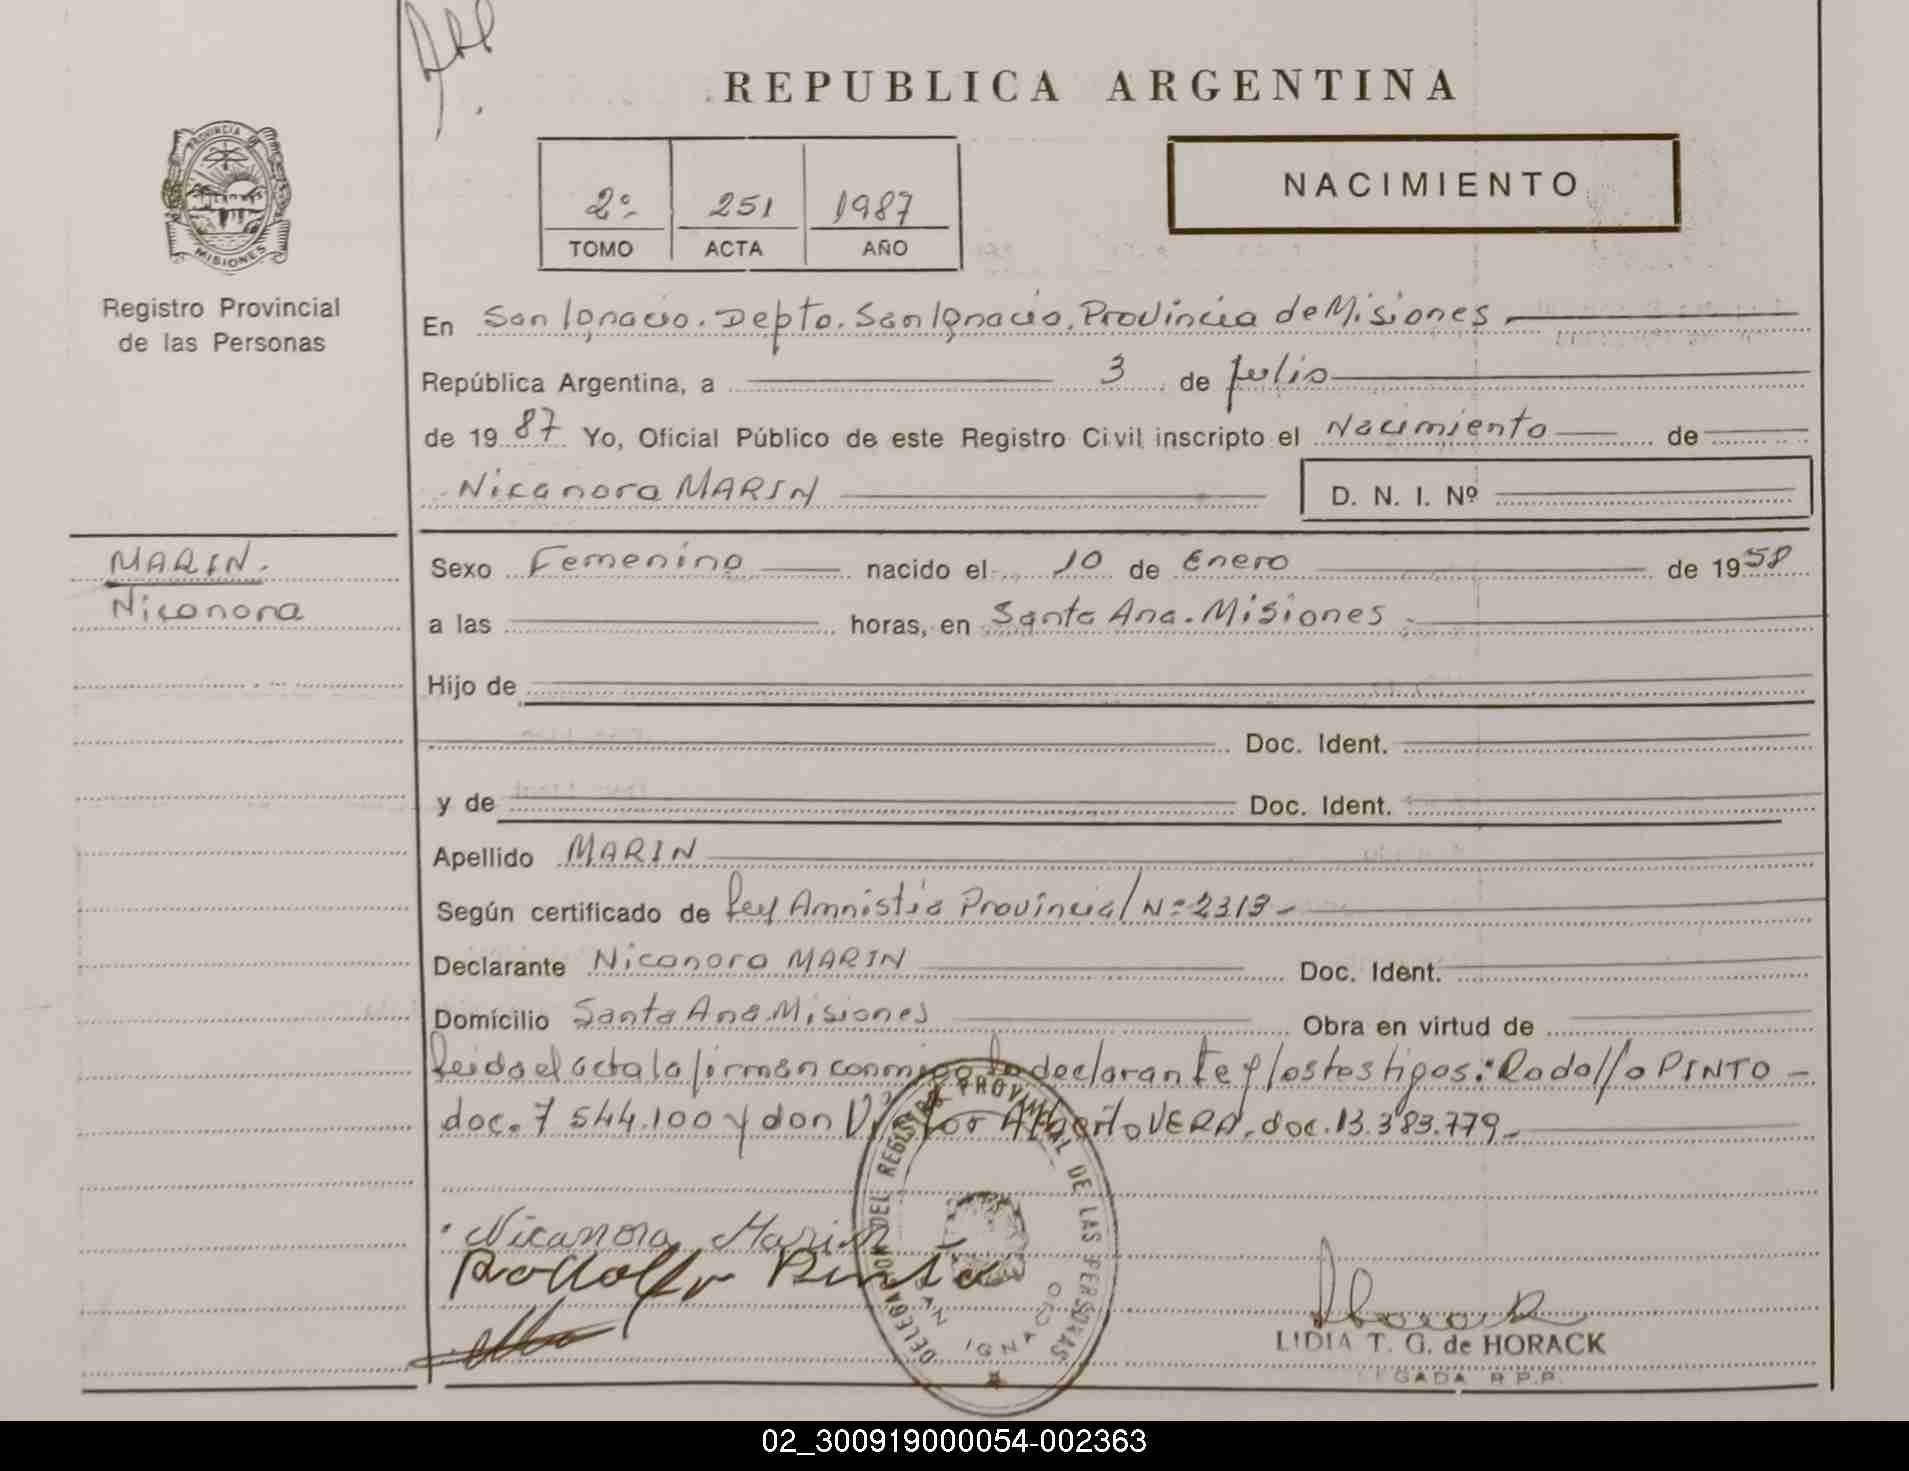 REPUBLICA ARGENTINA
PROVINCIA DE
MISIONES
Registro Provincial
de las Personas
2º 251 1987
TOMO ACTA AÑO
NACIMIENTO
En San Ignacio. Depto. San Ignacio. Provincia de Misiones
República Argentina, a 3 de julio
de 1987 Yo, Oficial Público de este Registro Civil inscripto el Nacimiento de
Nicanora MARIN D. N. I. Nº
MARIN.
Nicanora
Sexo Femenino nacido el 10 de Enero de 1958
a las horas, en Santa Ana. Misiones
Hijo de
Doc. Ident.
y de Doc. Ident.
Apellido MARIN
Según certificado de Ley Amnistia Provincial Nº 2313-
Declarante Nicanora MARIN Doc. Ident.
Domicilio Santa Ana Misiones Obra en virtud de
Leida el acta la firman conmigo la declarante y los testigos: Rodolfo PINTO -
doc. 7 544.100 y don Victor Alberto VERA. doc. 13.383.779-
Nicanora Marin
Rodolfo Pinto
DELEGACION DEL REGISTRO PROVINCIAL DE LAS PERSONAS
SAN IGNACIO
LIDIA T. G. de HORACK
DELEGADA R.P.P.
02_300919000054-002363